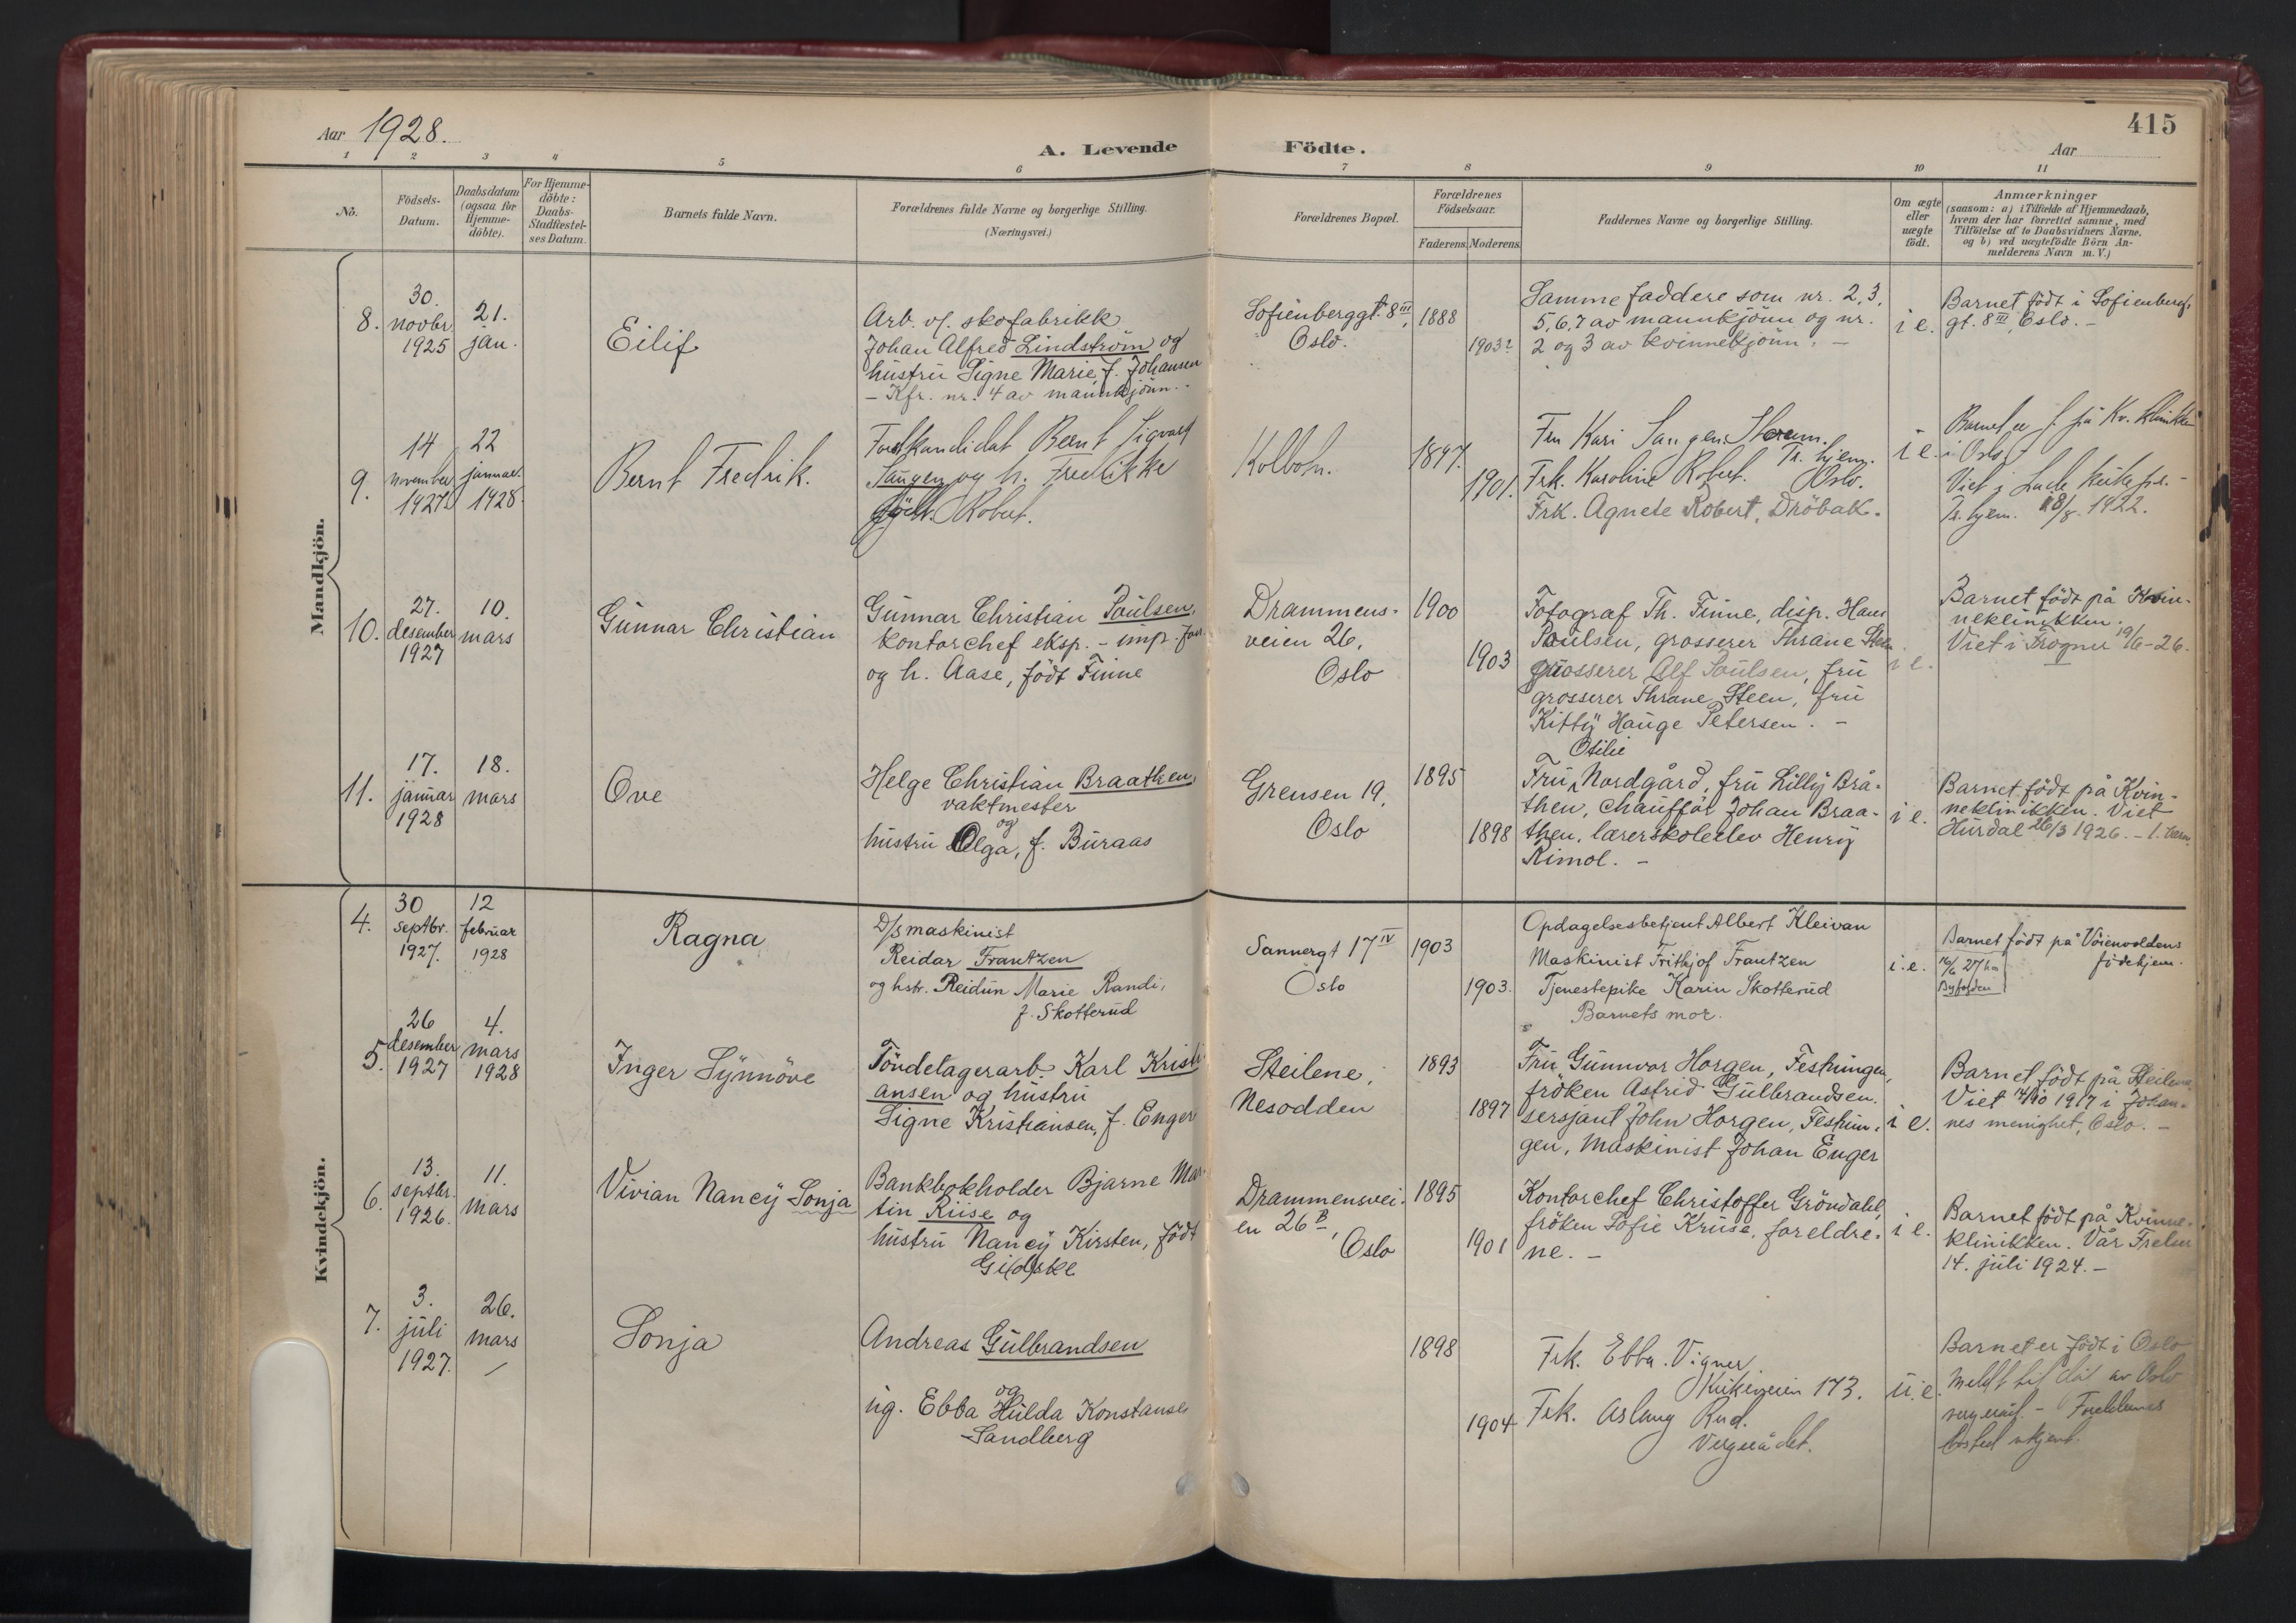 415
Aar 1928.
A. Levende Födte.
Aar
1 2 3 4 5 6 7 8 9 10 11
No.
Födsels-
Datum.
Daabsdatum
(ogsaa for
Hjemme-
döbte).
For Hjemme-
döbte:
Daabs-
Stadfæstel-
ses Datum.
Barnets fulde Navn.
Forældrenes fulde Navne og borgerlige Stilling.
(Næringsvei.)
Forældrenes Bopæl.
Forældrenes
Födselsaar.
Faderens. Moderens.
Faddernes Navne og borgerlige Stilling.
Om ægte
eller
uægte
födt.
Anmærkninger
(saasom: a) i Tilfælde af Hjemmedaab,
hvem der har forrettet samme, med
Tilföielse af to Daabsvidners Navne.
og b) ved uægtefödte Börn An-
melderens Navn m. V.)
Mandkjön.
8.
30.
novbr.
1925
21.
jan.
Eilif
Arb. v/. skofabrikk
Johan Alfred Lindström og
hustru Signe Marie, f. Johansen
- Kfr. nr. 4 av mannkjönn. -
Sofienberggt. 8 III,
Oslo.
1888
1903?
Samme faddere som nr. 2, 3,
5, 6, 7 av mannkjönn og nr.
2 og 3 av kvinnekjönn. -
i e.
Barnet födt i Sofienberg
gt. 8 III, Oslo. -
9.
14
november
1927
22
januar
1928
Bernt Fredrik.
Bernt Sigvart
Saugen og h. Fredikke
Robert.
Kolbotn.
1897.
1901.
Kari Saugen
Tr. hjem.
Frk. Karoline Robert. Oslo.
Frk. Agnete Robert, Dröbak.
i e.
Barnet er f. på Kv. klinikken
i Oslo.
Viet i Lade
Tr. hjem. 18/8. 1922.
10.
27.
desember
1927
10.
mars
Gunnar Christian
Gunnar Christian Poulsen,
kontorchef eksp. - imp.
og h. Aase, födt Finne
Drammens-
veien 26,
Oslo
1900
1903
Fotograf Th. Finne, disp. Hans
Poulsen, grosserer Thrane Steen
grosserer Alf Poulsen, fru
grosserer Thrane Steen, fru
Kitty Hauge Petersen. -
i e.
Barnet födt på Kvin-
neklinikken.
Viet i Frogner 19/6-26.
11.
17.
januar
1928
18.
mars
Ove
Helge Christian Braathen,
vaktmester
og
hustru Olga, f. Buraas
Grensen 19,
Oslo
1895
1898
Otilie
Fru Nordgård, fru Lilly Brå-
then, chauffør Johan Braa-
then, lærerskoleelev Henry
Rimol. -
i e.
Barnet födt på Kvin-
neklinikken. Viet
Hurdal 26/3 1926. - 1. barn.
Kvindekjön.
4.
30
septbr.
1927.
12
februar
1928
Ragna
D/S maskinist
Reidar Frantzen
og hstr. Reidun Marie Randi,
f. Skotterud
Sannergt 17 IV
Oslo
1903
1903.
Opdagelsesbetjent Albert Kleivan
Maskinist Frithjof Frantzen
Tjenestepike Karin Skotterud
Barnets mor.
i.e.
Barnet födt på Vöienvoldens
födehjem.
16/6 27
Byfogden
5.
26
desember
1927
4.
mars
1928
Inger Synnöve
Töndelagerarb. Karl Kristi
ansen og hustru
Signe Kristiansen, f. Enger
Steilene,
Nesodden
1893
1897
Fru Gunnvor Horgen, Festningen,
fröken Astrid Gulbrandsen,
sersjant John Horgen, Festnin-
gen, maskinist Johan Enger
i e.
Barnet födt på Steilene
Viet 14/10 1917 i Johan-
nes menighet, Oslo. -
6.
13.
septbr.
1926.
11.
mars
Vivian Nancy Sonja
Bankbokholder Bjarne Mar-
tin Riise og
hustru Nancy Kirsten, födt
Gi(d)ske
Drammensvei-
en 26 B,
Oslo
1895
1901
Kontorchef Christoffer Gröndahl,
fröken Sofie Kruse, foreldre-
ne. -
i e.
Barnet födt på Kvinne-
klinikken. Vår Frelser
14. juli 1924. -
7.
3.
juli
1927.
26.
mars
Sonja
Andreas Gulbrandsen
og
ug. Ebba Hulda Konstanse
Sandberg
1898
1904
Frk. Ebba Vigner
Kirkeveien 173.
Frk. Aslaug Rud.
Vergerådet.
u. e.
Barnet er födt i Oslo
Meldt til dåp av Oslo
vergeråd. - Foreldrenes
bosted ukjent.